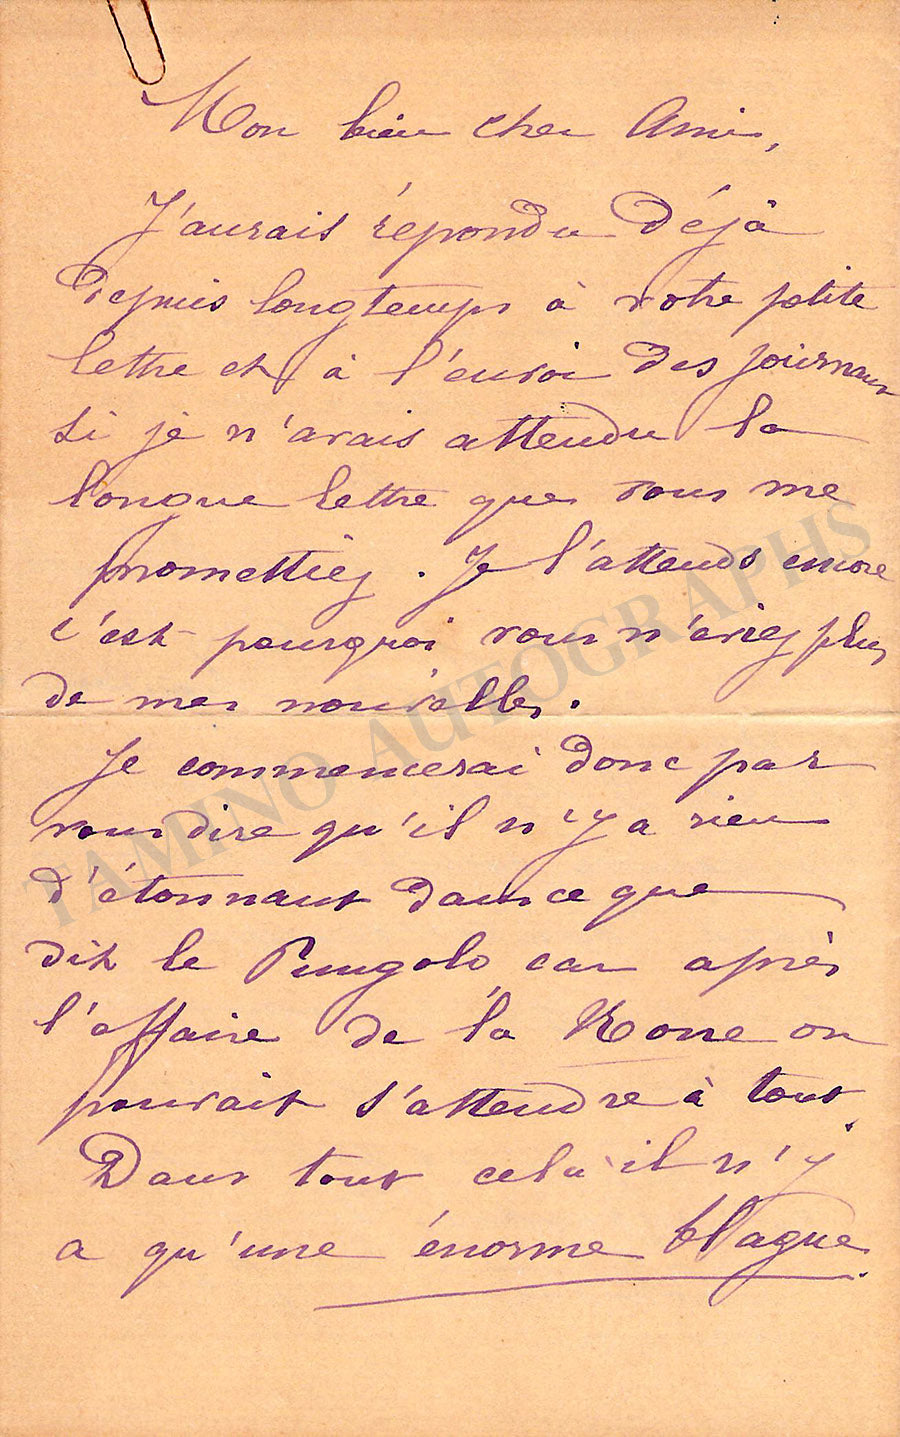 Mon bien cher Ami,
J'aurais répondu déjà
depuis longtemps à votre petite
lettre et à l'envoi des journaux
si je n'avais attendu la
longue lettre que vous me
promettiez. Je l'attends encore
c'est pourquoi vous n'aviez plus
de mes nouvelles.
Je commencerai donc par
vous dire qu'il n'y a rien
d'étonnant dans ce que
dit le Pungolo, car après
l'affaire de la on
pouvait s'attendre à tout.
Dans tout cela il n'y
a qu'une énorme blague.
TAMINO AUTOGRAPHS